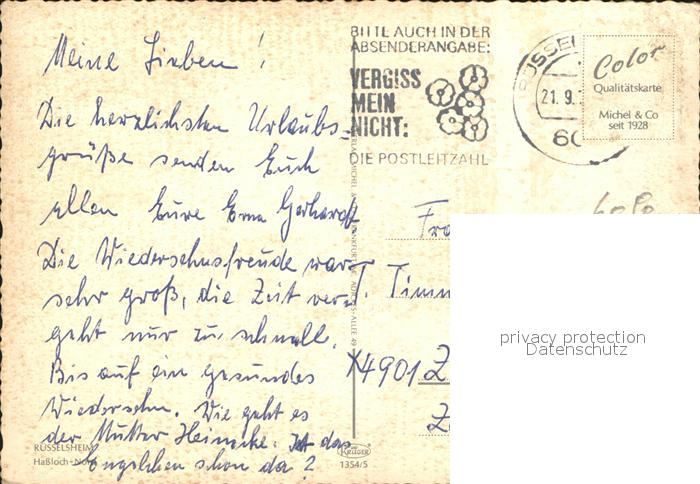 Meine Lieben!
Die herzlichsten Urlaubs-
grüße senden Euch
allen Eure Erna Gerhardt
Die Wiedersehnsfreude war
sehr groß, die Zeit ver-
geht nur zu schnell.
Bis auf ein gesundes
Wiedersehn. Wie geht es
der Mutter Heinecke. Ist das
Engelchen schon da?
RÜSSELSHEIM
Haßloch-Nord
BITTE AUCH IN DER
ABSENDERANGABE:
VERGISS
MEIN
NICHT:
DIE POSTLEITZAHL
21.9.
60
Color
Qualitätskarte
Michel & Co
seit 1928
Krüger
1354/5
T. Timm
4901
privacy protection
Datenschutz